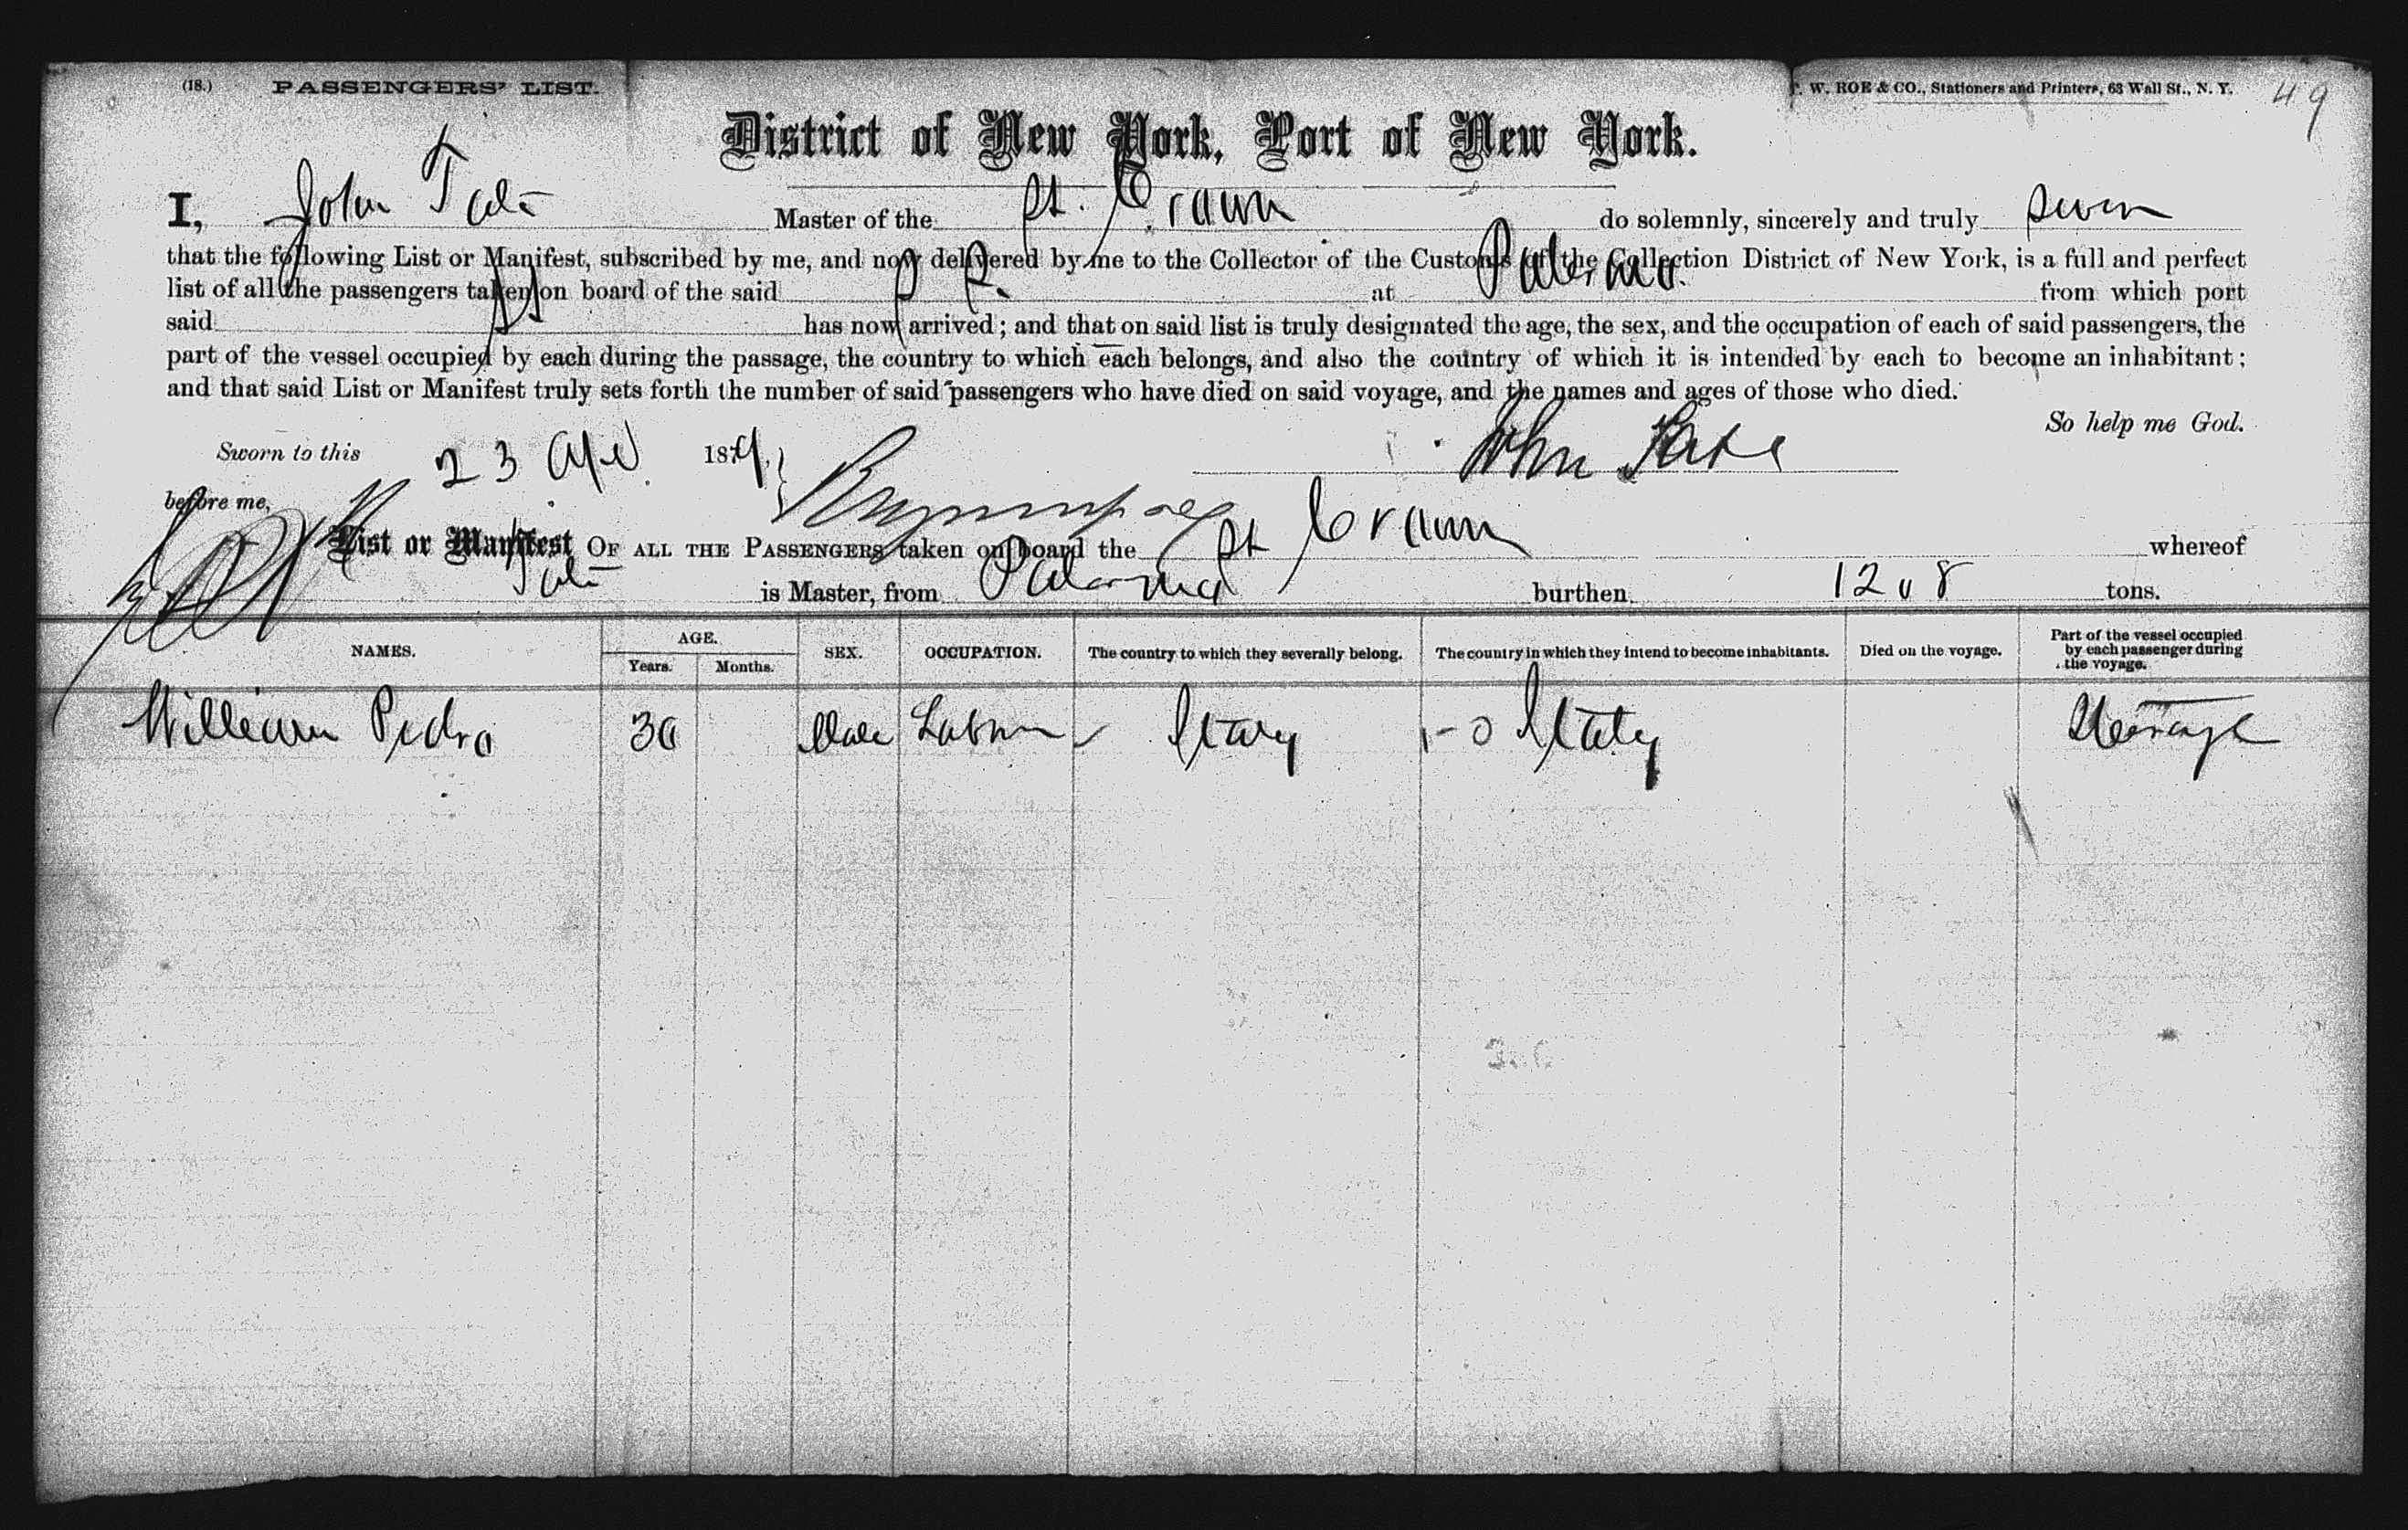 (18.) PASSENGERS' LIST. W. ROE & CO., Stationers and Printers, 63 Wall St., N. Y. 49
District of New York, Port of New York.
I, John Tate Master of the St. Craun do solemnly, sincerely and truly swear
that the following List or Manifest, subscribed by me, and now delivered by me to the Collector of the Customs of the Collection District of New York, is a full and perfect
list of all the passengers taken on board of the said at Palermo from which port
said has now arrived; and that on said list is truly designated the age, the sex, and the occupation of each of said passengers, the
part of the vessel occupied by each during the passage, the country to which each belongs, and also the country of which it is intended by each to become an inhabitant;
and that said List or Manifest truly sets forth the number of said passengers who have died on said voyage, and the names and ages of those who died.
So help me God.
Sworn to this 23 Apl 187 John Tate
before me,
List or Manifest OF ALL THE PASSENGERS taken on board the St Craun whereof
Tate is Master, from Palermo burthen 1208 tons.
NAMES. AGE. Years. Months. SEX. OCCUPATION. The country to which they severally belong. The country in which they intend to become inhabitants. Died on the voyage. Part of the vessel occupied by each passenger during the voyage.
William Pedro 30 Male Labour Italy Italy Steerage